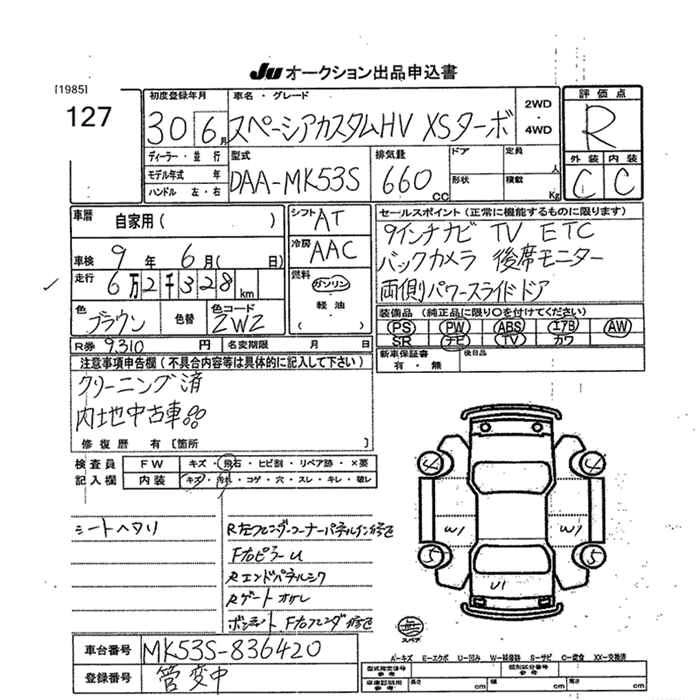 JU オークション出品申込書
[1985]
127
初度登録年月
30 6月
車名・グレード
スペーシアカスタムHV XSターボ
2WD
・
4WD
評価点
R
ディーラー・並行
モデル年式 年
ハンドル 左・右
型式
DAA-MK53S
排気量
660 cc
ドア
形状
定員
人
積載
Kg
外装 内装
C C
車歴
自家用( )
シフト AT
冷房 AAC
セールスポイント(正常に機能するものに限ります)
9インチナビ TV ETC
バックカメラ 後席モニター
両側パワースライドドア
車検
9年 6月( 日)
走行
6万2千328km
燃料
ガソリン
・
軽油
( )
色
ブラウン
色替
色コード
ZWZ
装備品(純正品に限り○を付けてください)
PS PW ABS エアB AW
SR ナビ TV カワ
R券 9,310 円
名変期限 月 日
新車保証書
有・無
後日品
注意事項申告欄(不具合内容等は具体的に記入して下さい)
クリーニング済
内地中古車
修復歴 有[箇所 ]
検査員
記入欄
FW キズ・飛石・ヒビ割・リペア跡・×要
内装 キズ・汚れ・コゲ・穴・スレ・キレ・破レ
シートヘタリ
R左フェンダーコーナーパネルイン修正
F右ピラーU
Rエンドパネルシワ
Rゲートオサレ
ボンネット F右フェンダ修正
4 4
W1 W1
5 5
U1
スペア
A-キズ E-エクボ U-凹み W-補修跡 S-サビ C-腐食 XX-交換済
車台番号
MK53S-836420
登録番号
管変中
型式指定番号
参考
類別区分番号
参考
車庫証明用
参考
長さ cm 幅 cm 高さ cm